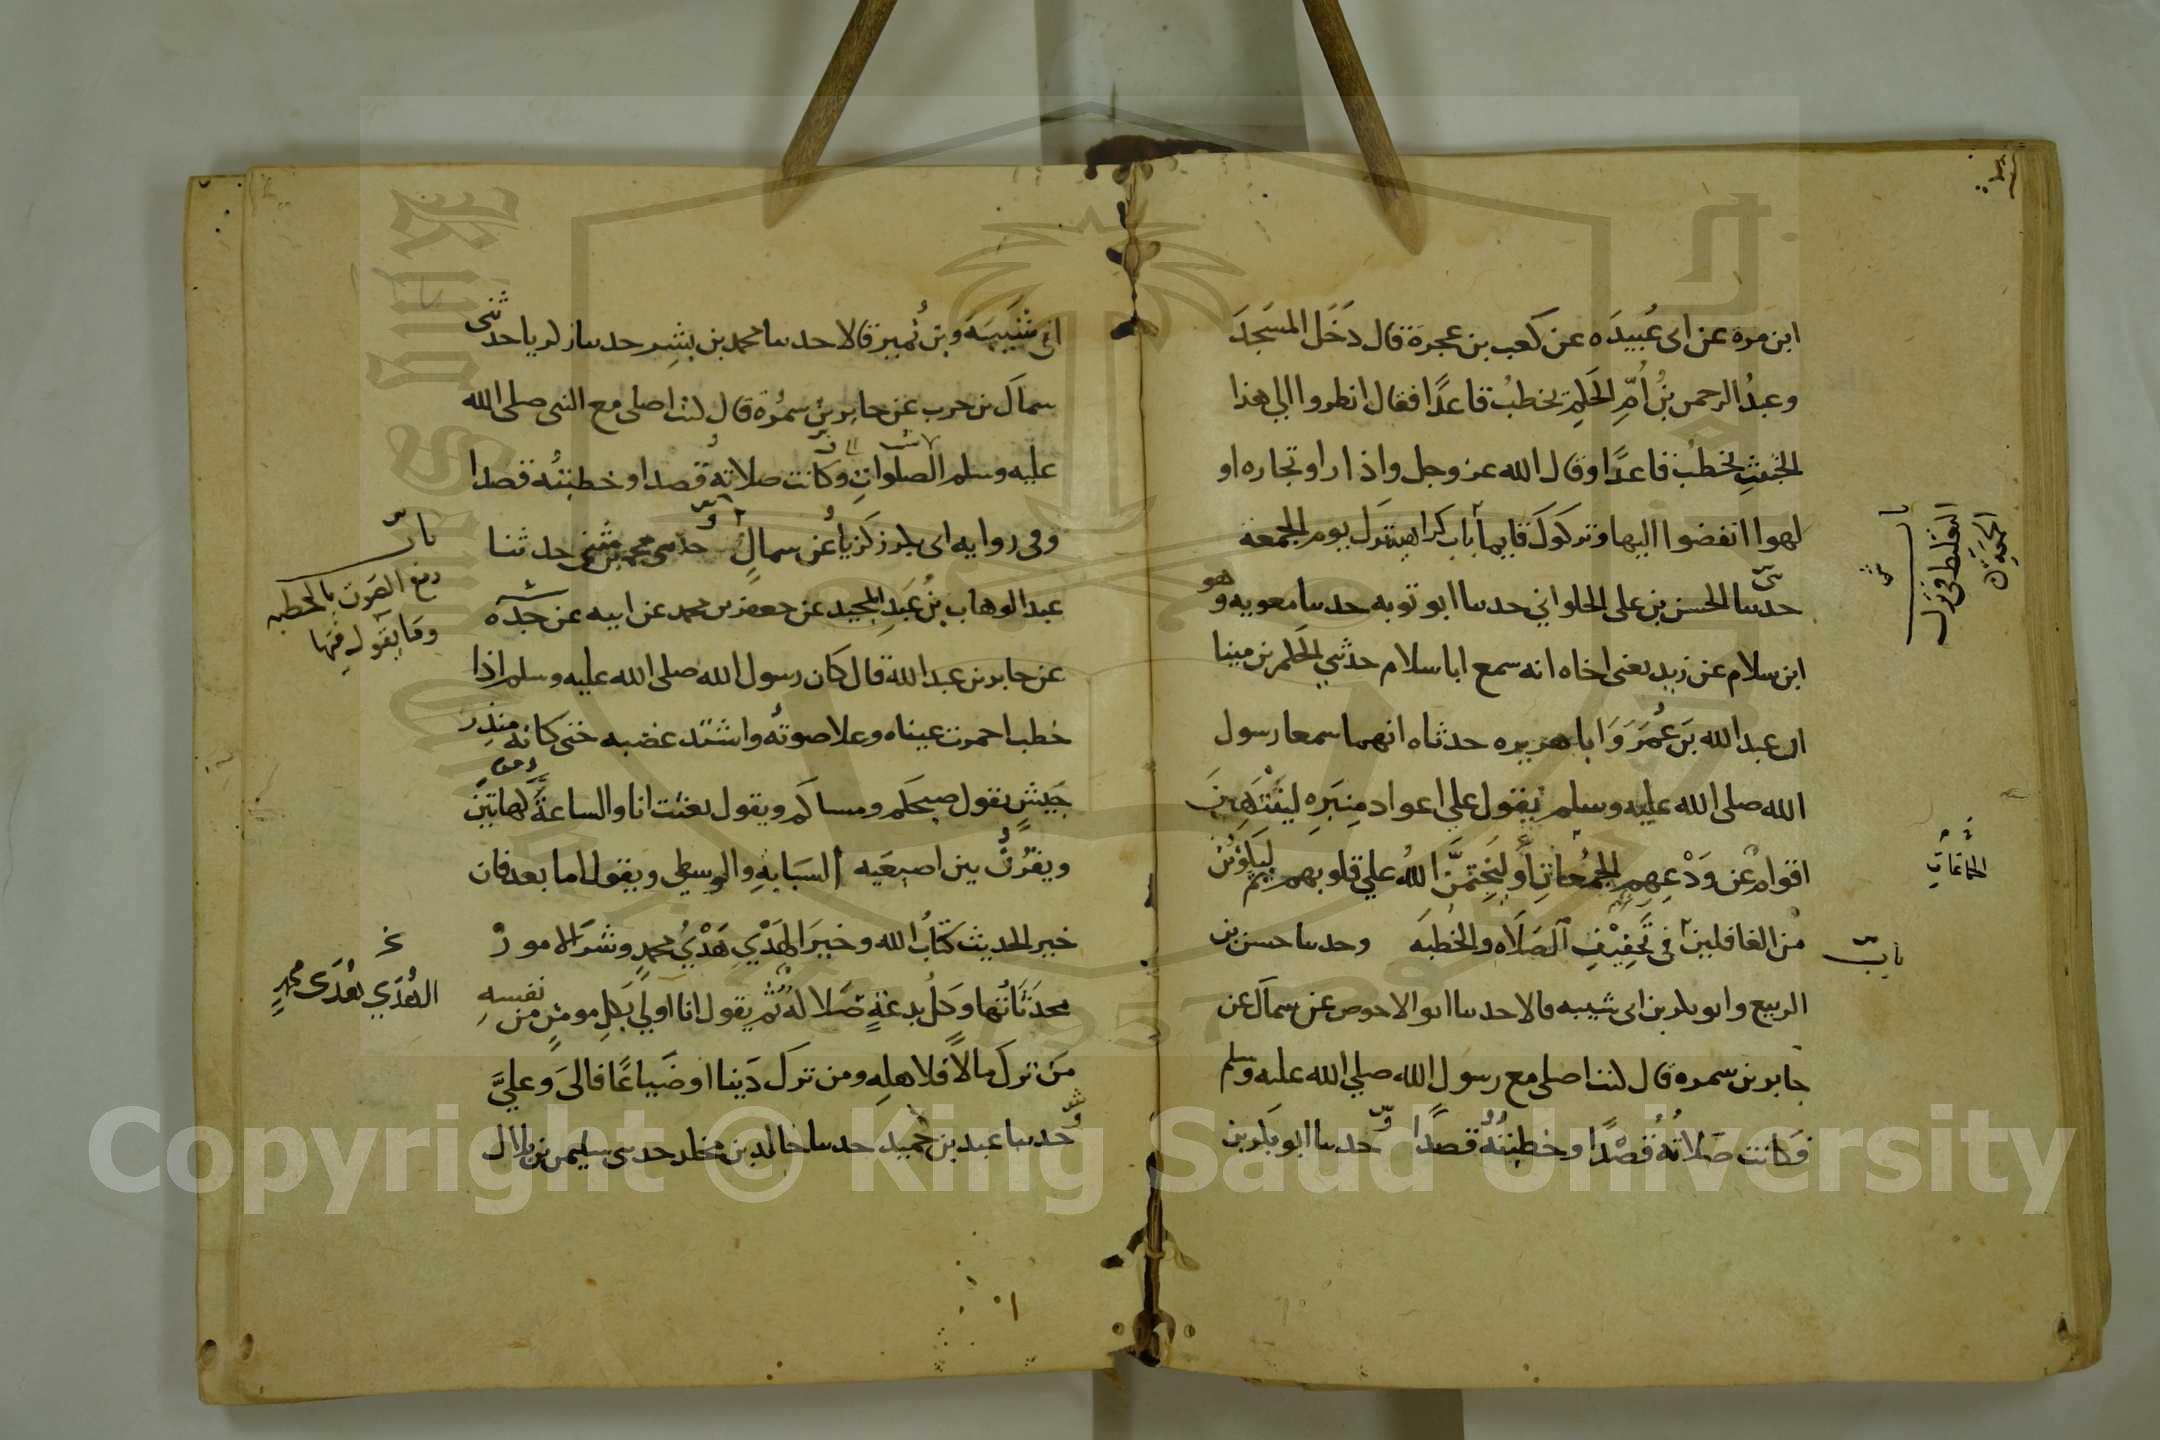 ابن مرة عن ابى عُبيدَه عن كعب بن عجرة قال دَخَل المسَجدَ
وعبدُ الرحمن بنُ اُمِّ الحَكِم يخطبُ قاعدًا فقال انظروا الى هذا
الخبيثِ يخطبُ قاعدًا وقال الله عز وجل واذا راوتجاره او
لهوا انفضوا اليها وتركوكَ قايما باب كراهية ترك يوم الجمعة
حدثنى الحسن بن على الحلوانى حدثنا ابو توبه حدثنا معويه وهو
ابن سلام عن زيد يعنى اخاه انه سمع ابا سلام حدثني الحكم بن مينا
ان عبد الله بن عُمَرَ وَابا هريره حدثاه انهما سمعا رسول
الله صلى الله عليه وسلم يقول علي اعواد مِنبَرِه ليَنْتَهِيَنَ
اقوام عن وَدْعِهِم الجمُعاتِ أو ليَختِمَنَّ اللهُ علي قلوبهم ثم ليَكونُن
من الغافلين في تَخفِيْفِ الصَلاه والخُطبَه وحدثنا حسن بن
الربيع وابو بكر بن ابى شيبه قالا حدثنا ابو الاحوص عن سماك عن
جابر بن سمره قال كنت اصلى مع رسول الله صلي الله عليه وسلم
فكانت صَلاتُهُ قصْدًا وخطبتُهُ قصدًا حدثنا ابو بكر بن
باب
التغليظ في ترك
الجمعة
الجماعات
باب
ابى شيبَه وبن نُمير قالا حدثنا محمد بن بشِر حدثنا زكريا حدثنى
سماك بن حرب عن جابر بن سمُرة قال كنت اصلى مع النبى صلى الله
عليه وسلم الصلوات وكانت صلاته قصدا وخطبتُه قصدا
وفى روايه ابى بكر زكريا عن سماك حدثنى محمد بن مثنى حدثنا
عبد الوهاب بنُ عَبدِ المجيد عن جعفر بن محمد عن ابيه عن جده
عن جابر بن عبد الله قال كان رسول الله صلى الله عليه وسلم اذا
خطب احمرت عيناه وعلا صوتُه واشتد غضبه حتى كانه منذِر
جَيشٍ يقول صبحكم ومساكم ويقول بعثت انا والساعةَ كهاتين
ويقرُنُ بين اصبعَيه السَبابهِ والوسطى ويقول اما بعد فان
خير الحديث كتابُ الله وخيرَ الهَدْيِ هَدْيُ محمدٍ وشرَ الامور
محدَثاتُها وكلُ بدعةٍ ضلالهٌ ثم يقول انا اولي بكلِ مومنٍ من نفسهِ
مَن ترك مالاً فلاهلِهِ ومن ترك دَينا اوضَياعًا فالىَ وعليَّ
حدثنا عبد بن حميد حدثنا خالد بن مخلد حدثنى سليمن بن بلال
باب
رفع الصوت بالخطبه
وما يقول فيها
الهُدَي هُدَى محمدٍ
King Saud University
1957
Copyright © King Saud University